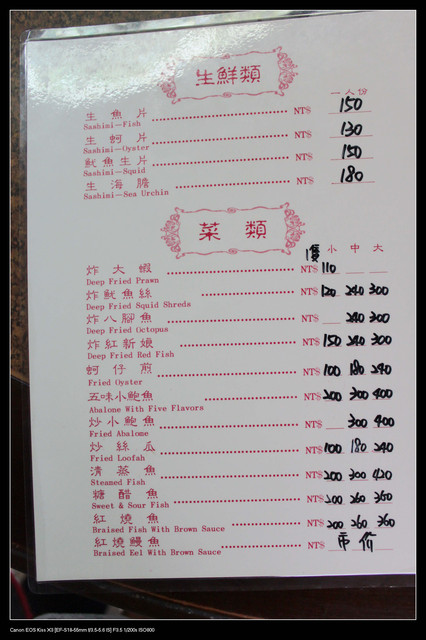 生鮮類
一人份
生魚片 NT$ 150
Sashimi—Fish
生蚵片 NT$ 130
Sashimi—Oyster
魷魚生片 NT$ 150
Sashimi—Squid
生海膽 NT$ 180
Sashimi—Sea Urchin
菜類
1隻 小 中 大
炸大蝦 NT$ 110
Deep Fried Prawn
炸魷魚絲 NT$ 120 240 300
Deep Fried Squid Shreds
炸八腳魚 NT$ 240 300
Deep Fried Octopus
炸紅新娘 NT$ 150 240 300
Deep Fried Red Fish
蚵仔煎 NT$ 100 180 240
Fried Oyster
五味小鮑魚 NT$ 200 300 400
Abalone With Five Flavors
炒小鮑魚 NT$ 300 400
Fried Abalome
炒絲瓜 NT$ 100 180 240
Fried Loofah
清蒸魚 NT$ 200 300 420
Steamed Fish
糖醋魚 NT$ 200 260 360
Sweet & Sour Fish
紅燒魚 NT$ 200 260 360
Braised Fish With Brown Sauce
紅燒鰻魚 NT$ 市价
Braised Eel With Brown Sauce
Canon EOS Kiss X3 [EF-S18-55mm f/3.5-5.6 IS] F3.5 1/200s ISO800